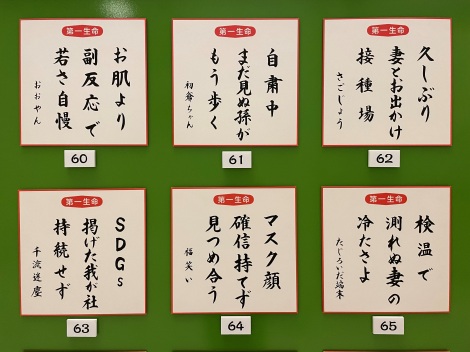 第一生命
お肌より
副反応で
若さ自慢
おおやん
60
第一生命
自粛中
まだ見ぬ孫が
もう歩く
初爺ちゃん
61
第一生命
久しぶり
妻とお出かけ
接種場
さごじょう
62
第一生命
SDGs
掲げた我が社
持続せず
千流迷塵
63
第一生命
マスク顔
確信持てず
見つめ合う
福笑い
64
第一生命
検温で
測れぬ妻の
冷たさよ
たじろいだ端末
65